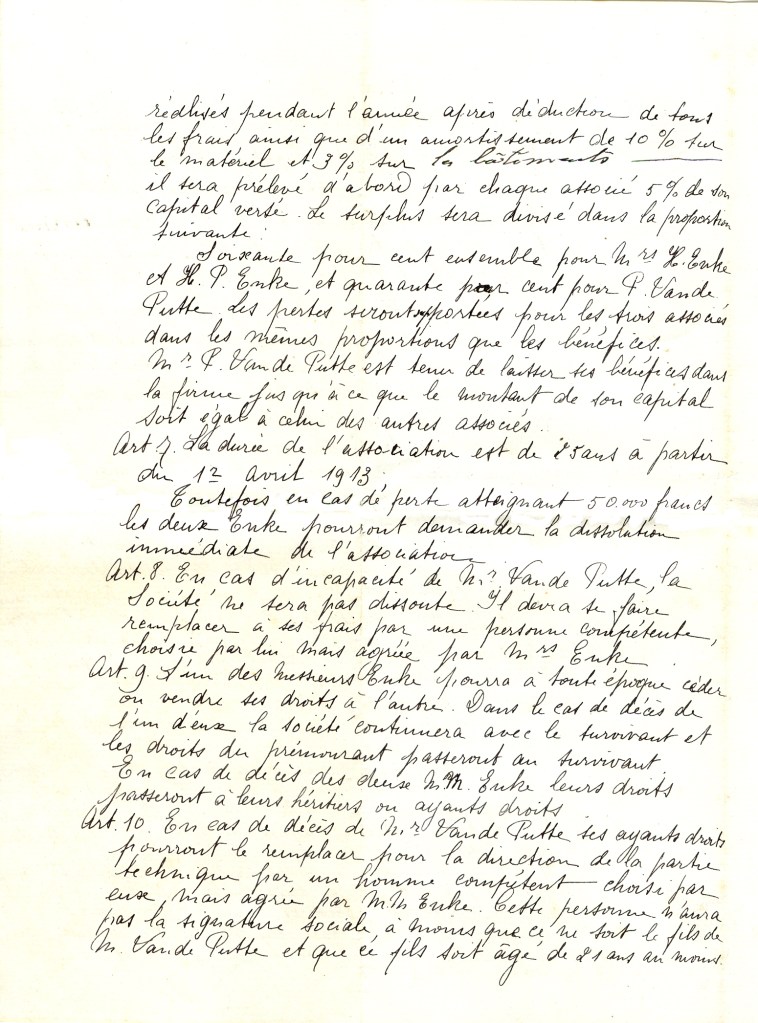 réalisés pendant l'année après déduction de tous
les frais ainsi que d'un amortissement de 10 % sur
le matériel et 3 % sur les bâtiments
il sera prélevé d'abord par chaque associé 5 % de son
capital versé. Le surplus sera divisé dans la proportion
suivante :
Soixante pour cent ensemble pour Mrs H. Enke
et H. P. Enke, et quarante pour cent pour P. Van de
Putte. Les pertes seront supportées pour les trois associés
dans les mêmes proportions que les bénéfices.
Mr P. Van de Putte est tenu de laisser ses bénéfices dans
la firme jusqu'à ce que le montant de son capital
soit égal à celui des autres associés.
Art. 7. La durée de l'association est de 25 ans à partir
du 1er Avril 1913.
Toutefois en cas de perte atteignant 50.000 francs
les deux Enke pourront demander la dissolution
immédiate de l'association.
Art. 8. En cas d'incapacité de Mr Van de Putte, la
Société ne sera pas dissoute. Il devra se faire
remplacer à ses frais par une personne compétente,
choisie par lui mais agréée par Mrs Enke.
Art. 9. L'un des Messieurs Enke pourra à toute époque céder
ou vendre ses droits à l'autre. Dans le cas de décès de
l'un d'eux la société continuera avec le survivant et
les droits du prémourant passeront au survivant
En cas de décès des deux M.M. Enke leurs droits
passeront à leurs héritiers ou ayants droits.
Art. 10. En cas de décès de Mr Van de Putte ses ayants droits
pourront le remplacer pour la direction de la partie
technique par un homme compétent choisi par
eux, mais agrée par M M Enke. Cette personne n'aura
pas la signature sociale, à moins que ce ne soit le fils de
M. Van de Putte et que ce fils soit âgé de 21 ans au moins.